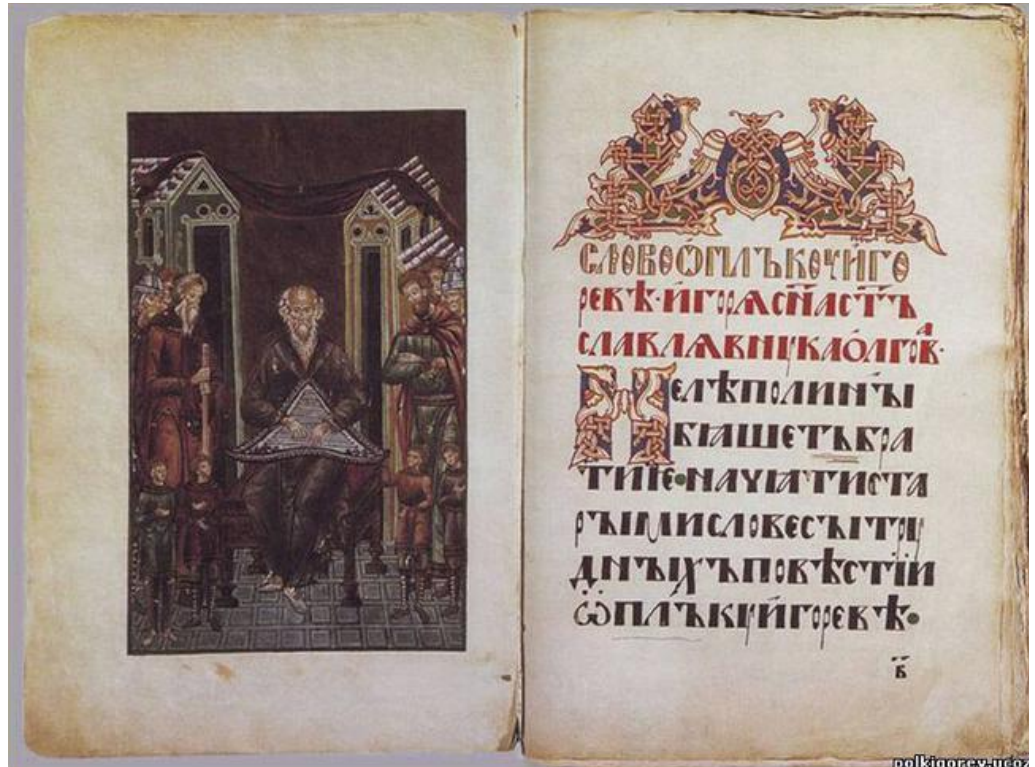 СЛОВОѾПЛЪКОУИ҆ГО
РЕВѢ·И҆ГОРѦСН҃АСТ҃Ъ
СЛАВЛѦВНꙊКАО҆ЛГОВⷶ·
НЕЛѢПОЛИНЫ
БꙖШЕТЬБРА
ТИѤ·НАЧѦТИСТА
РЫМИСЛОВЕСЫТРꙊ
ДНЫХЪПОВѢСТІИ
ѾПЛЪКꙊИ҆ГОРЕВѢ·
в҃
polkigorev.ucoz